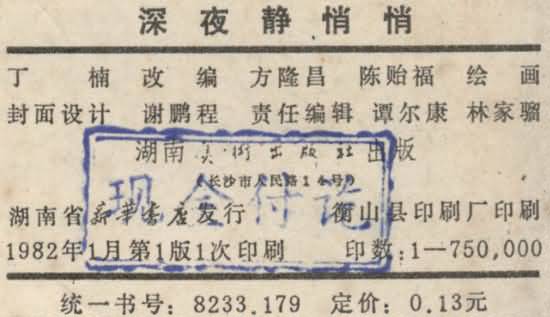 深夜静悄悄
丁楠改编 方隆昌 陈贻福绘画
封面设计 谢鹏程 责任编辑 谭尔康 林家骝
湖南美术出版社出版
（长沙市人民路14号）
现金付讫
湖南省新华书店发行 衡山县印刷厂印刷
1982年1月第1版1次印刷 印数：1—750,000
统一书号：8233.179 定价：0.13元